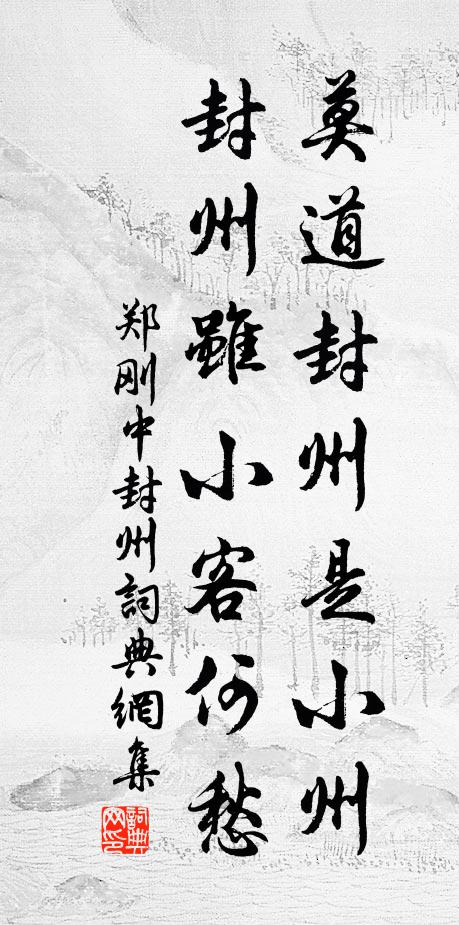 莫道封州是小州
封州雖小客何愁
郑刚中封州詞典網集
詞典網印